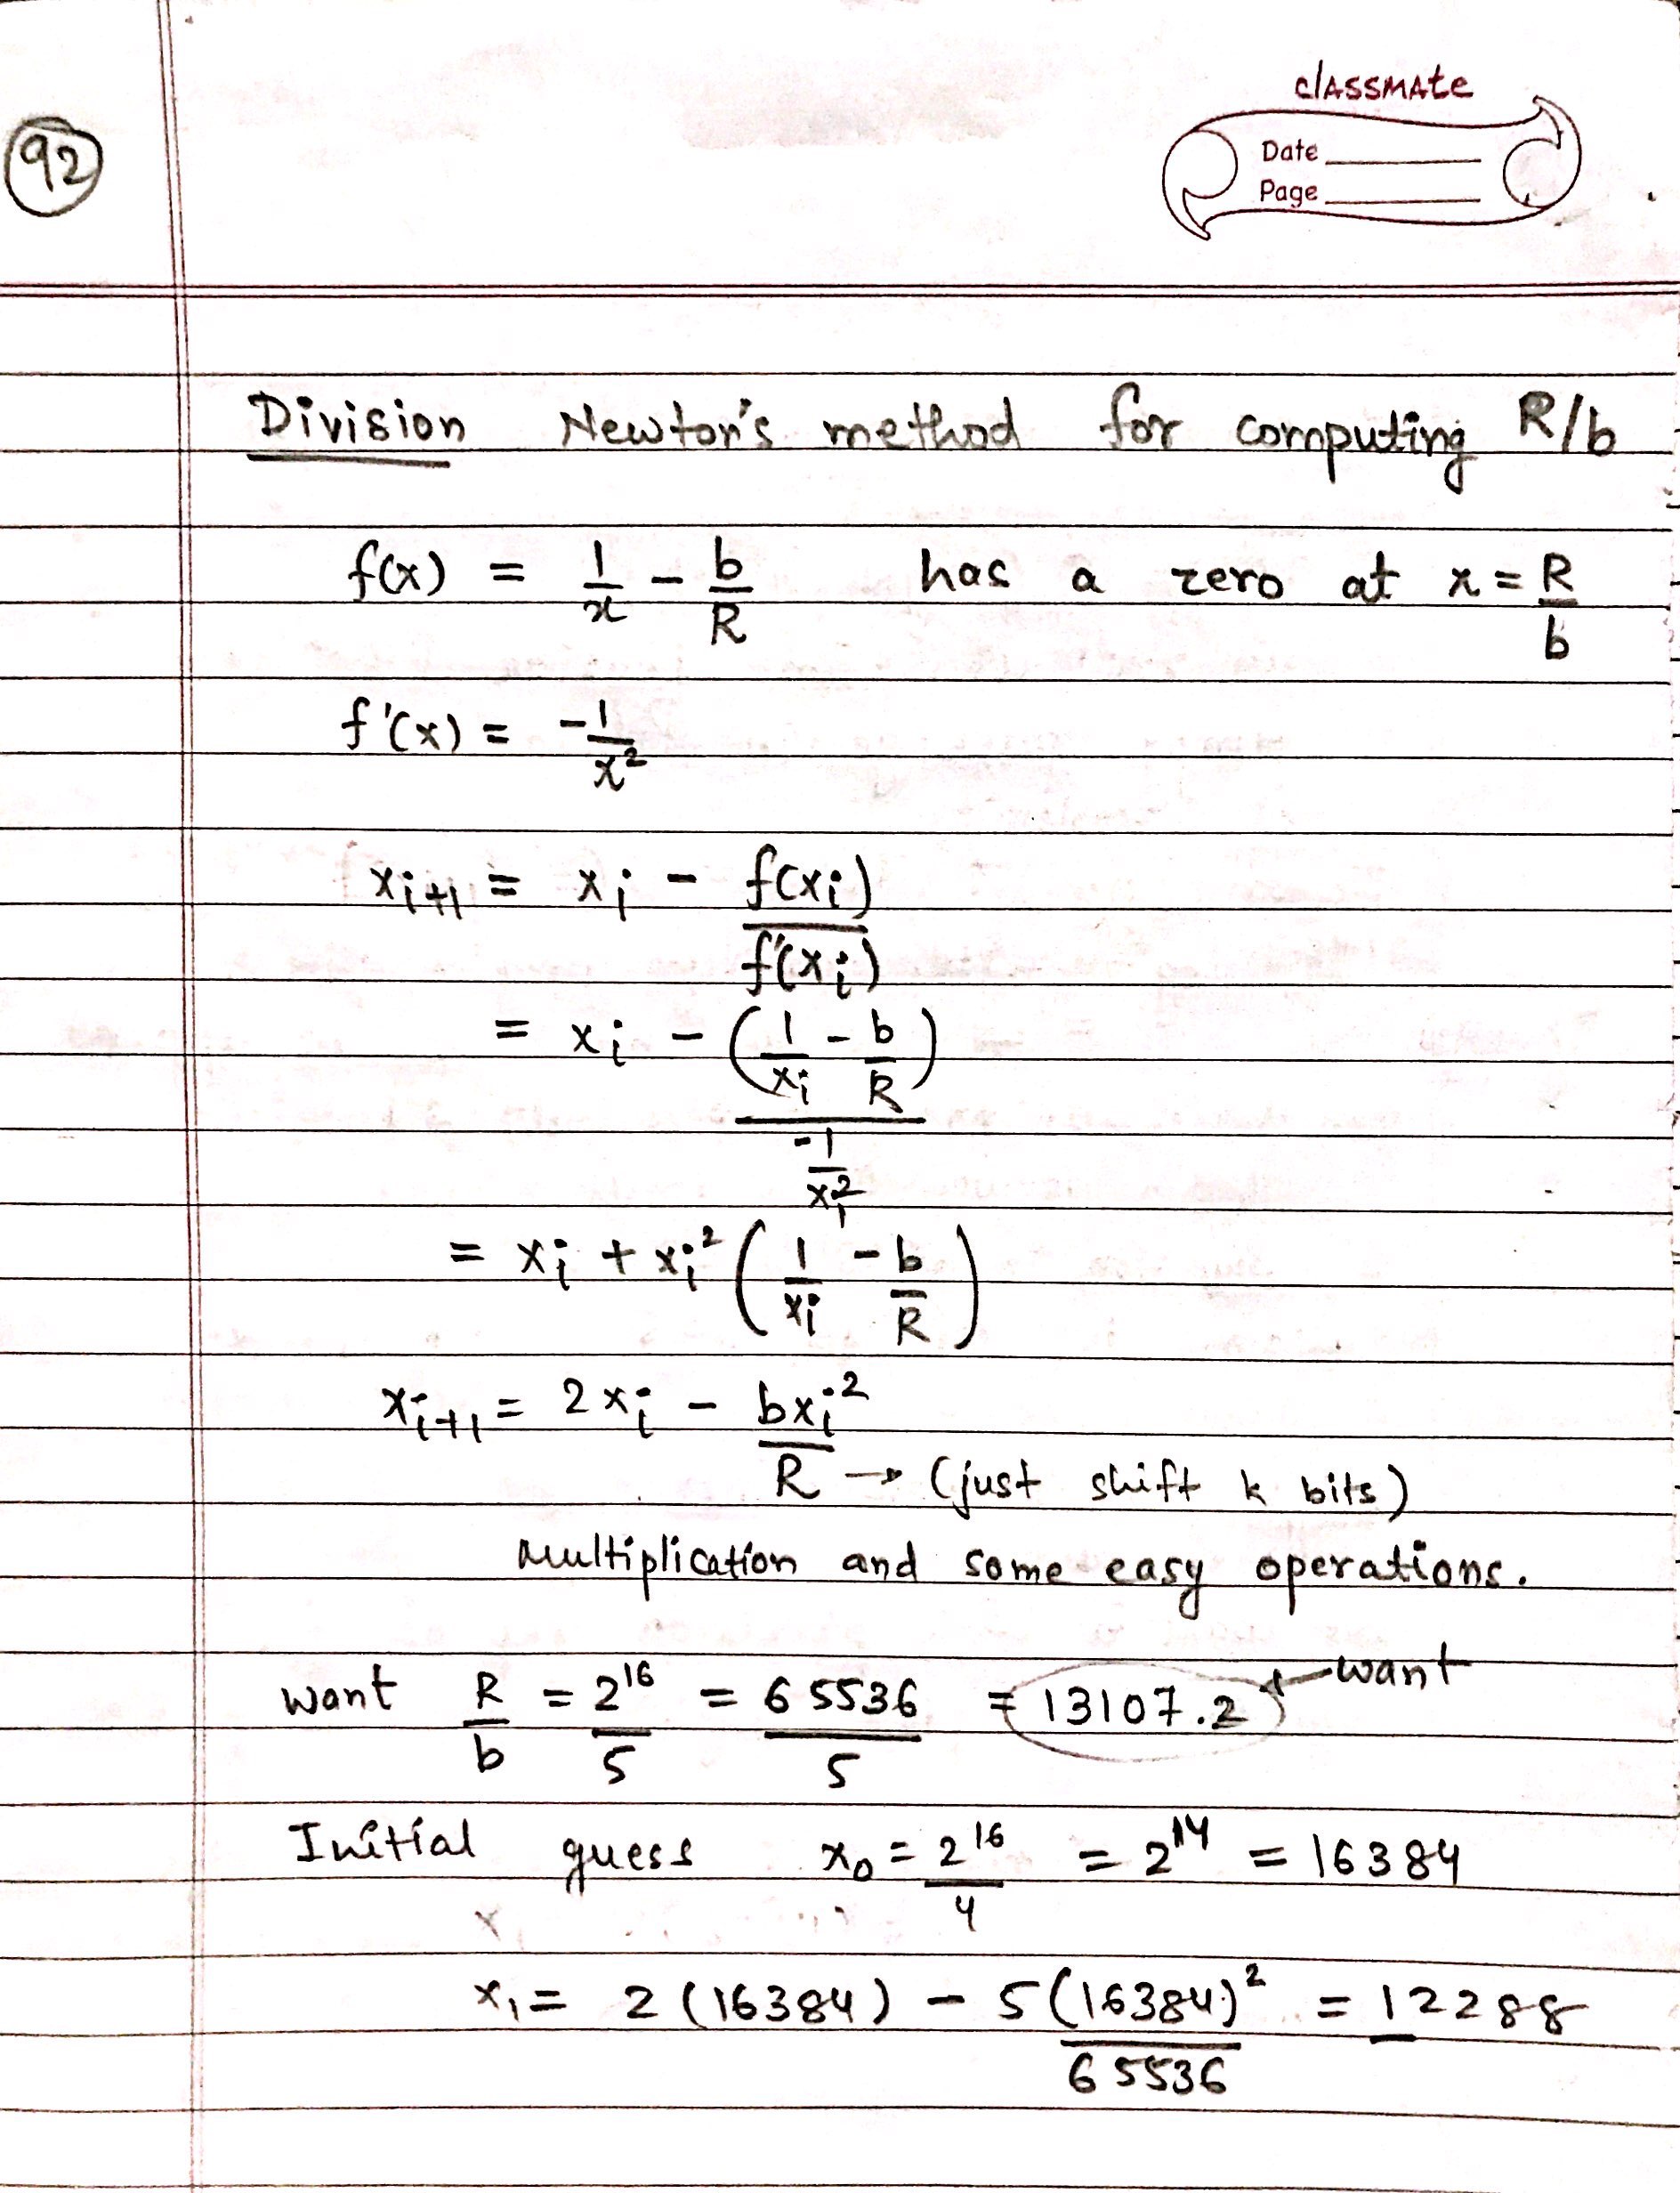 classmate
92
Date
Page
Division Newton's method for computing R/b
f(x) = 1/x - b/R has a zero at x = R/b
f'(x) = -1/x²
xᵢ₊₁ = xᵢ - f(xᵢ)/f'(xᵢ)
= xᵢ - (1/xᵢ - b/R)/(-1/xᵢ²)
= xᵢ + xᵢ² (1/xᵢ - b/R)
xᵢ₊₁ = 2xᵢ - bxᵢ²/R → (just shift k bits)
multiplication and some easy operations.
want R/b = 2¹⁶/5 = 65536/5 = 13107.2 ← want
Initial guess x₀ = 2¹⁶/4 = 2¹⁴ = 16384
x₁ = 2(16384) - 5(16384)²/65536 = 12288